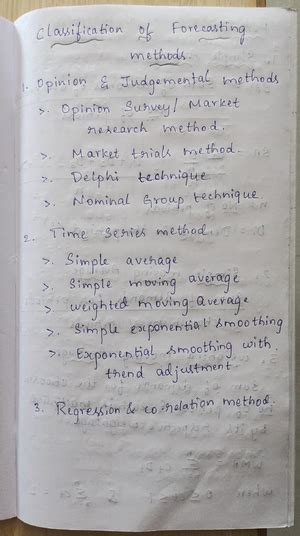 Classification of Forecasting
methods.
1. Opinion & Judgemental methods
>. Opinion Survey/ Market
research method.
>. Market trials method.
>. Delphi technique
>. Nominal Group technique.
2. Time Series method.
>. Simple average
>. Simple moving average
>. weighted moving average
>. Simple exponential smoothing
>. Exponential smoothing with
trend adjustment
3. Regression & co-relation method.